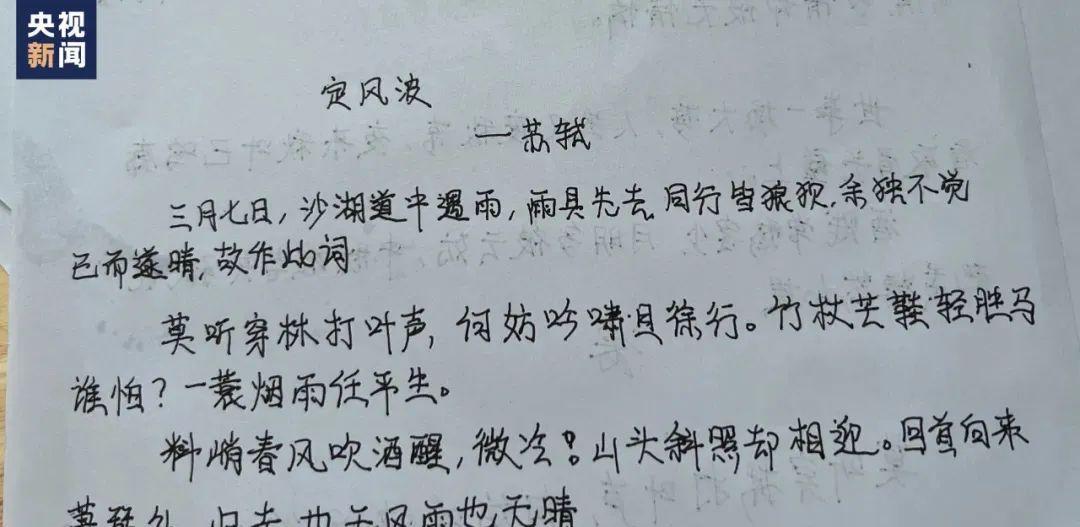 央视
新闻
定风波
—苏轼
三月七日，沙湖道中遇雨，雨具先去，同行皆狼狈，余独不觉
已而遂晴，故作此词
莫听穿林打叶声，何妨吟啸且徐行。竹杖芒鞋轻胜马
谁怕？一蓑烟雨任平生。
料峭春风吹酒醒，微冷。山头斜照却相迎。回首向来
归去 也无风雨也无晴